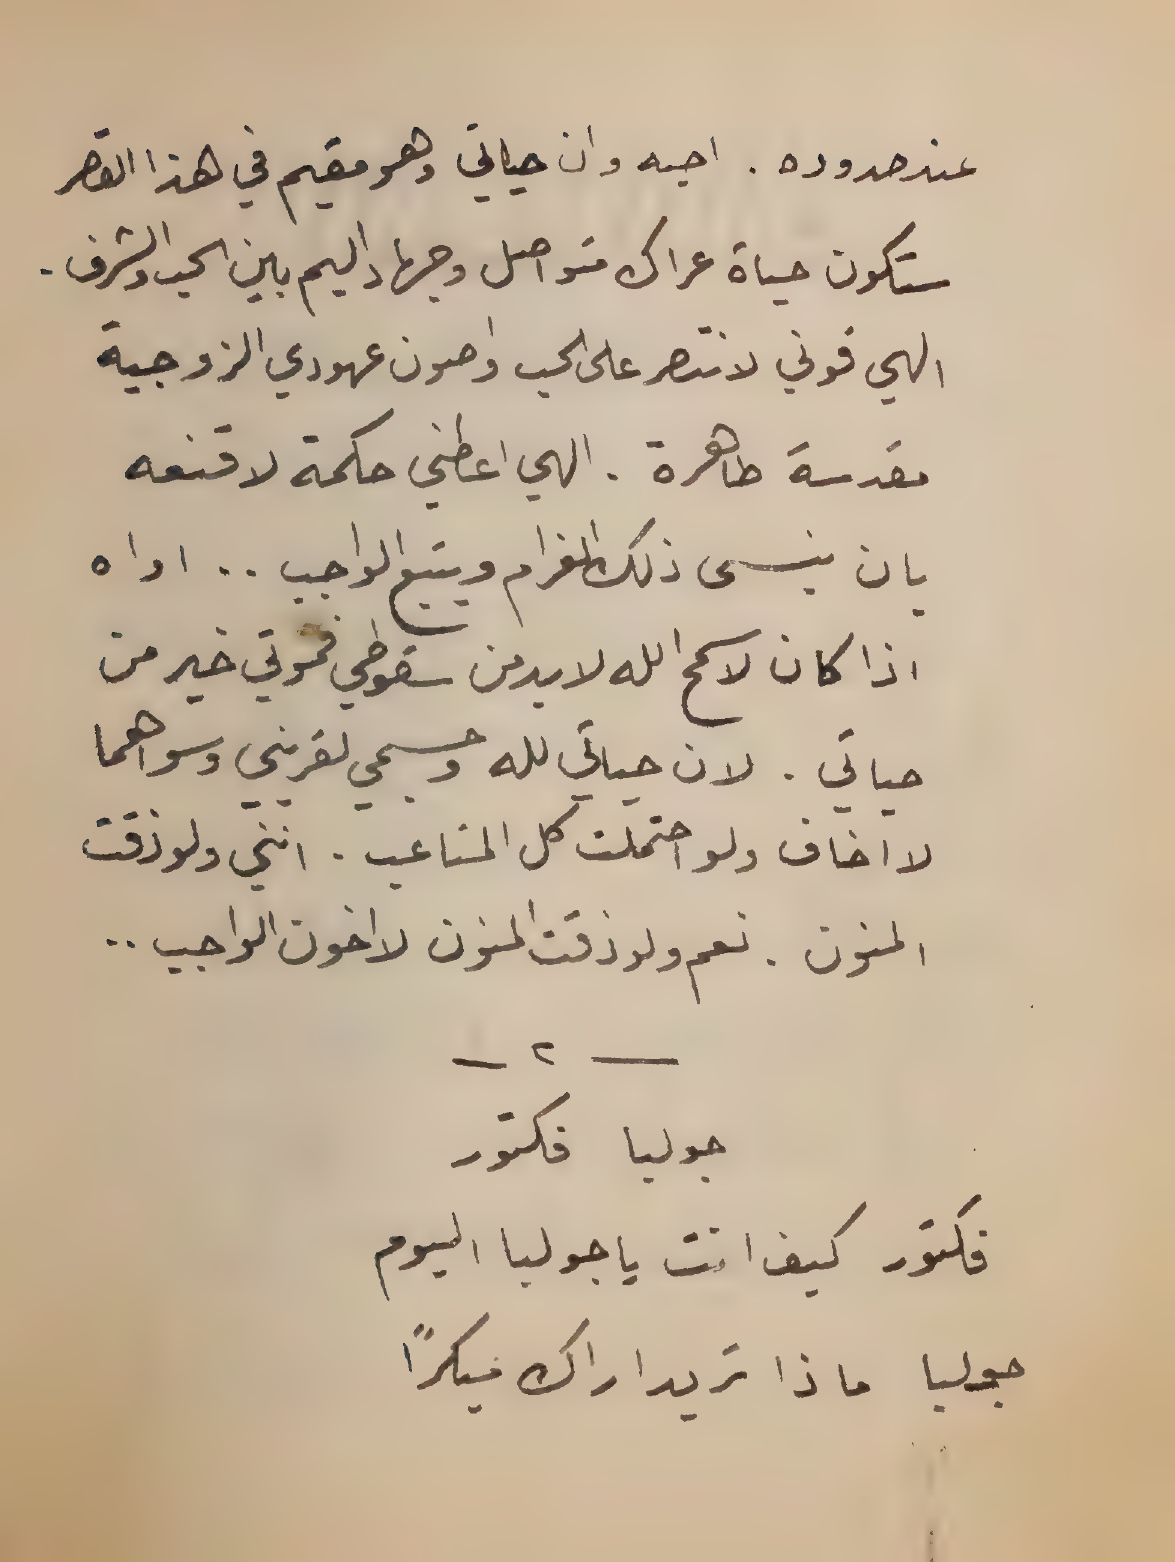 عند حدوده . احبه وان حياتي وهو مقيم في هذا القصر
ستكون حياة عراك متواصل وجهاد اليم بين الحب والشرف .
الهي قوني لانتصر على الحب واصون عهودي الزوجية
مقدسة طاهرة . الهي اعطني حكمة لاقنعه
بان ينسى ذلك الغرام ويتبع الواجب .. اواه
اذا كان لا سمح الله لابد من سقوطي فموتي خير من
حياتي . لان حياتي لله وجسمي لقريني وسواهما
لا اخاف ولو احتملت كل المتاعب . انني ولو ذقت
المنون . نعم ولو ذقت المنون لا اخون الواجب ..
— ٢ —
جوليا فكتور
فكتور كيف انت يا جوليا اليوم
جوليا ماذا تريد اراك مبكرًا